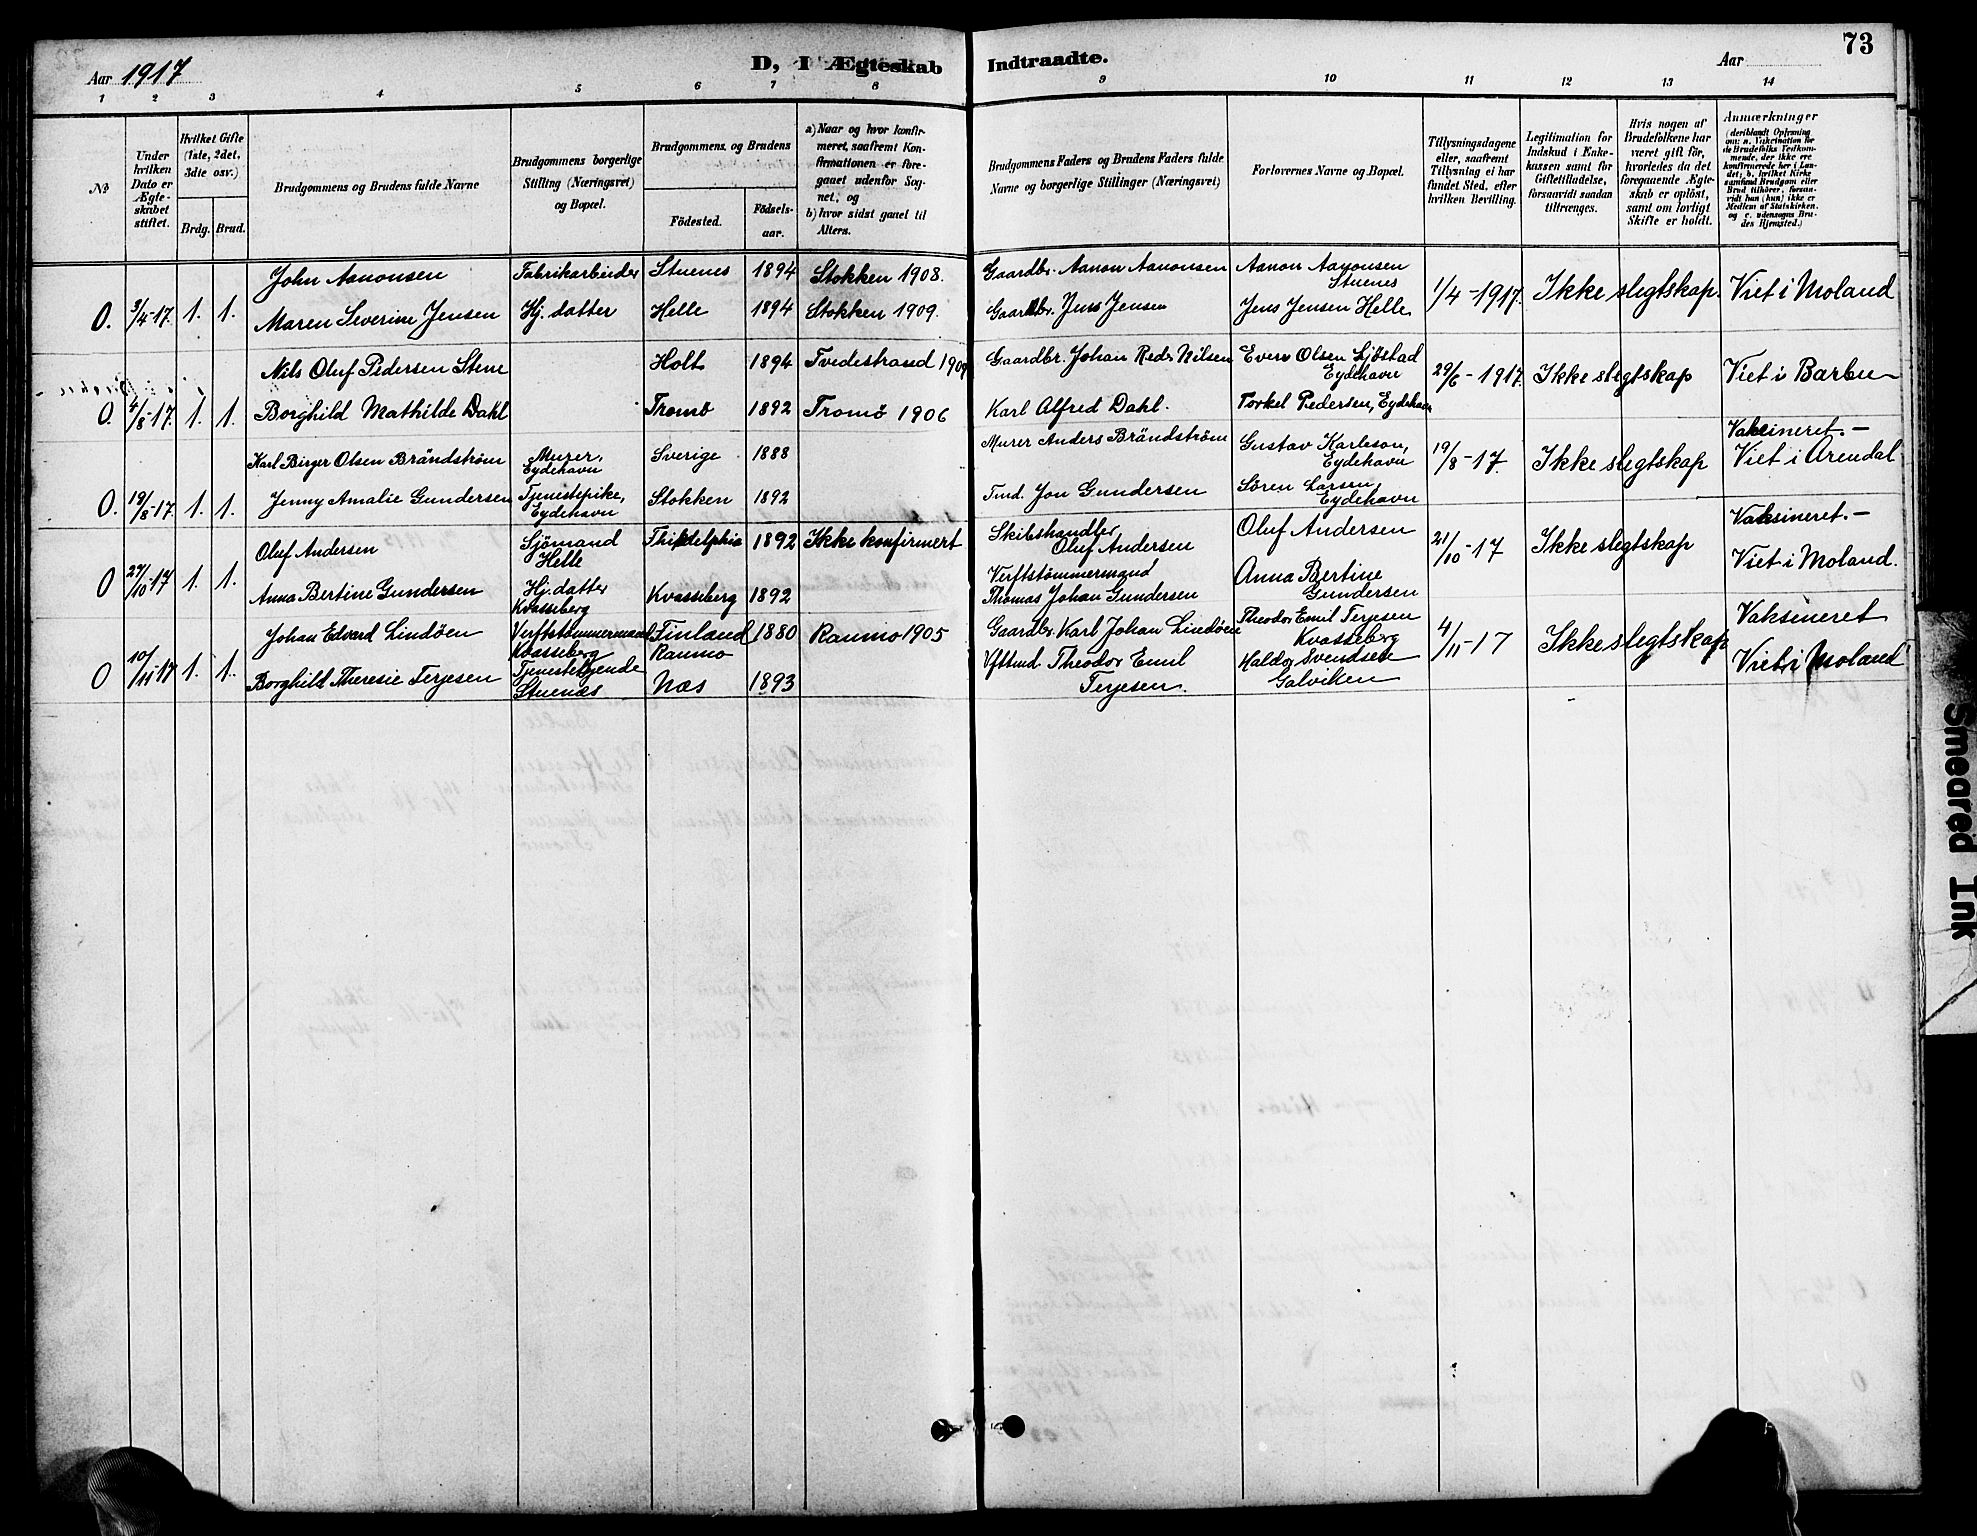 73
Aar 1917
D, I Ægteskab Indtraadte.
Aar
1 2 3 4 5 6 7 8 9 10 11 12 13 14
No
Under hvilken Dato er Ægteskabet stiftet.
Hvilket Gifte (1ste, 2det, 3die osv.)
Brdg. Brud.
Brudgommens og Brudens fulde Navne
Brudgommens borgerlige Stilling (Næringsvei) og Bopæl.
Brudgommens og Brudens
Födested.
Födselsaar.
a) Naar og hvor konfirmeret, saafremt Konfirmationen er foregaaet udenfor Sognet, og
b) hvor sidst gaaet til Alters.
Brudgommens Faders og Brudens Faders fulde Navne og borgerlige Stillinger (Næringsvei)
Forlovernes Navne og Bopæl.
Tillysningsdagene eller, saafremt Tillysning ei har fundet Sted, efter hvilken Bevilling.
Legitimation for Indskud i Enkekassen samt for Giftetilladelse, forsaavidt saadan tiltrænges.
Hvis nogen af Brudefolkene har været gift för, hvorledes da det foregaaende Ægteskab er oplöst, samt om lovligt Skifte er holdt.
Anmærkninger
(deriblandt Oplysning om: a. Vakcination for de Brudefolks Vedkommende, der ikke ere konfirmerede her i Landet; b. hvilket Kirkesamfund Brudgom eller Brud tilhörer, forsaavidt han (hun) ikke er Medlem af Statskirken, og c. udensogns Brudes Hjemsted.)
O. 3/4-17. 1. 1.
John Aanonsen Fabrikarbeider Stuenes 1894 Stokken 1908. Gaardbr. Aanon Aanonsen Aanon Aanonsen Stuenes
Maren Severine Jensen Hj. datter Helle 1894 Stokken 1909. Gaardbr. Jens Jensen Jens Jensen Helle
1/4-1917. Ikke slegtskap. Viet i Moland
O. 4/8-17. 1. 1.
Nils Oluf Pedersen Stene Holt 1894 Tvedestrand 1909 Gaardbr. Johan Peder Nilsen Even Olsen Ljöstad Eydehavn
Borghild Mathilde Dahl Tromö 1892 Tromö 1906 Karl Alfred Dahl. Torkel Pedersen, Eydehavn
29/6-1917. Ikke slegtskap Viet i Barbu
O. 19/8-17. 1. 1.
Karl Birger Olsen Brändström Murer, Eydehavn Sverige 1888 Murer Anders Brändström Gustav Karlsson, Eydehavn
Jenny Amalie Gundersen Tjenestepike, Eydehavn Stokken 1892 Tmd. Jon Gundersen Sören Larsen, Eydehavn
19/8-17 Ikke slegtskap Vaksineret.- Viet i Arendal
O 27/10-17 1. 1.
Oluf Andersen Sjömand Helle 1892 Ikke konfirmert Skibshandler Oluf Andersen Oluf Andersen
Anna Bertine Gundersen Hj. datter Kvasseberg Kvasseberg 1892 Verftstömmermand Thomas Johan Gundersen Anna Bertine Gundersen
21/10-17 Ikke slegtskap Vaksineret.- Viet i Moland.
O 10/11-17 1. 1.
Johan Edvard Lindöen Verftstömmermand Kvasseberg Finland Raumo 1880 Raumo 1905 Gaardbr. Karl Johan Lindöen Theodor Emil Terjesen Kvasseberg
Borghild Theresie Terjesen Tjenestetyende Stuenæs Næs 1893 Vftmd Theodor Emil Terjesen. Haldor Svendsen Galviken
4/11-17 Ikke slegtskap Vaksineret Viet i Moland
Smeared Ink